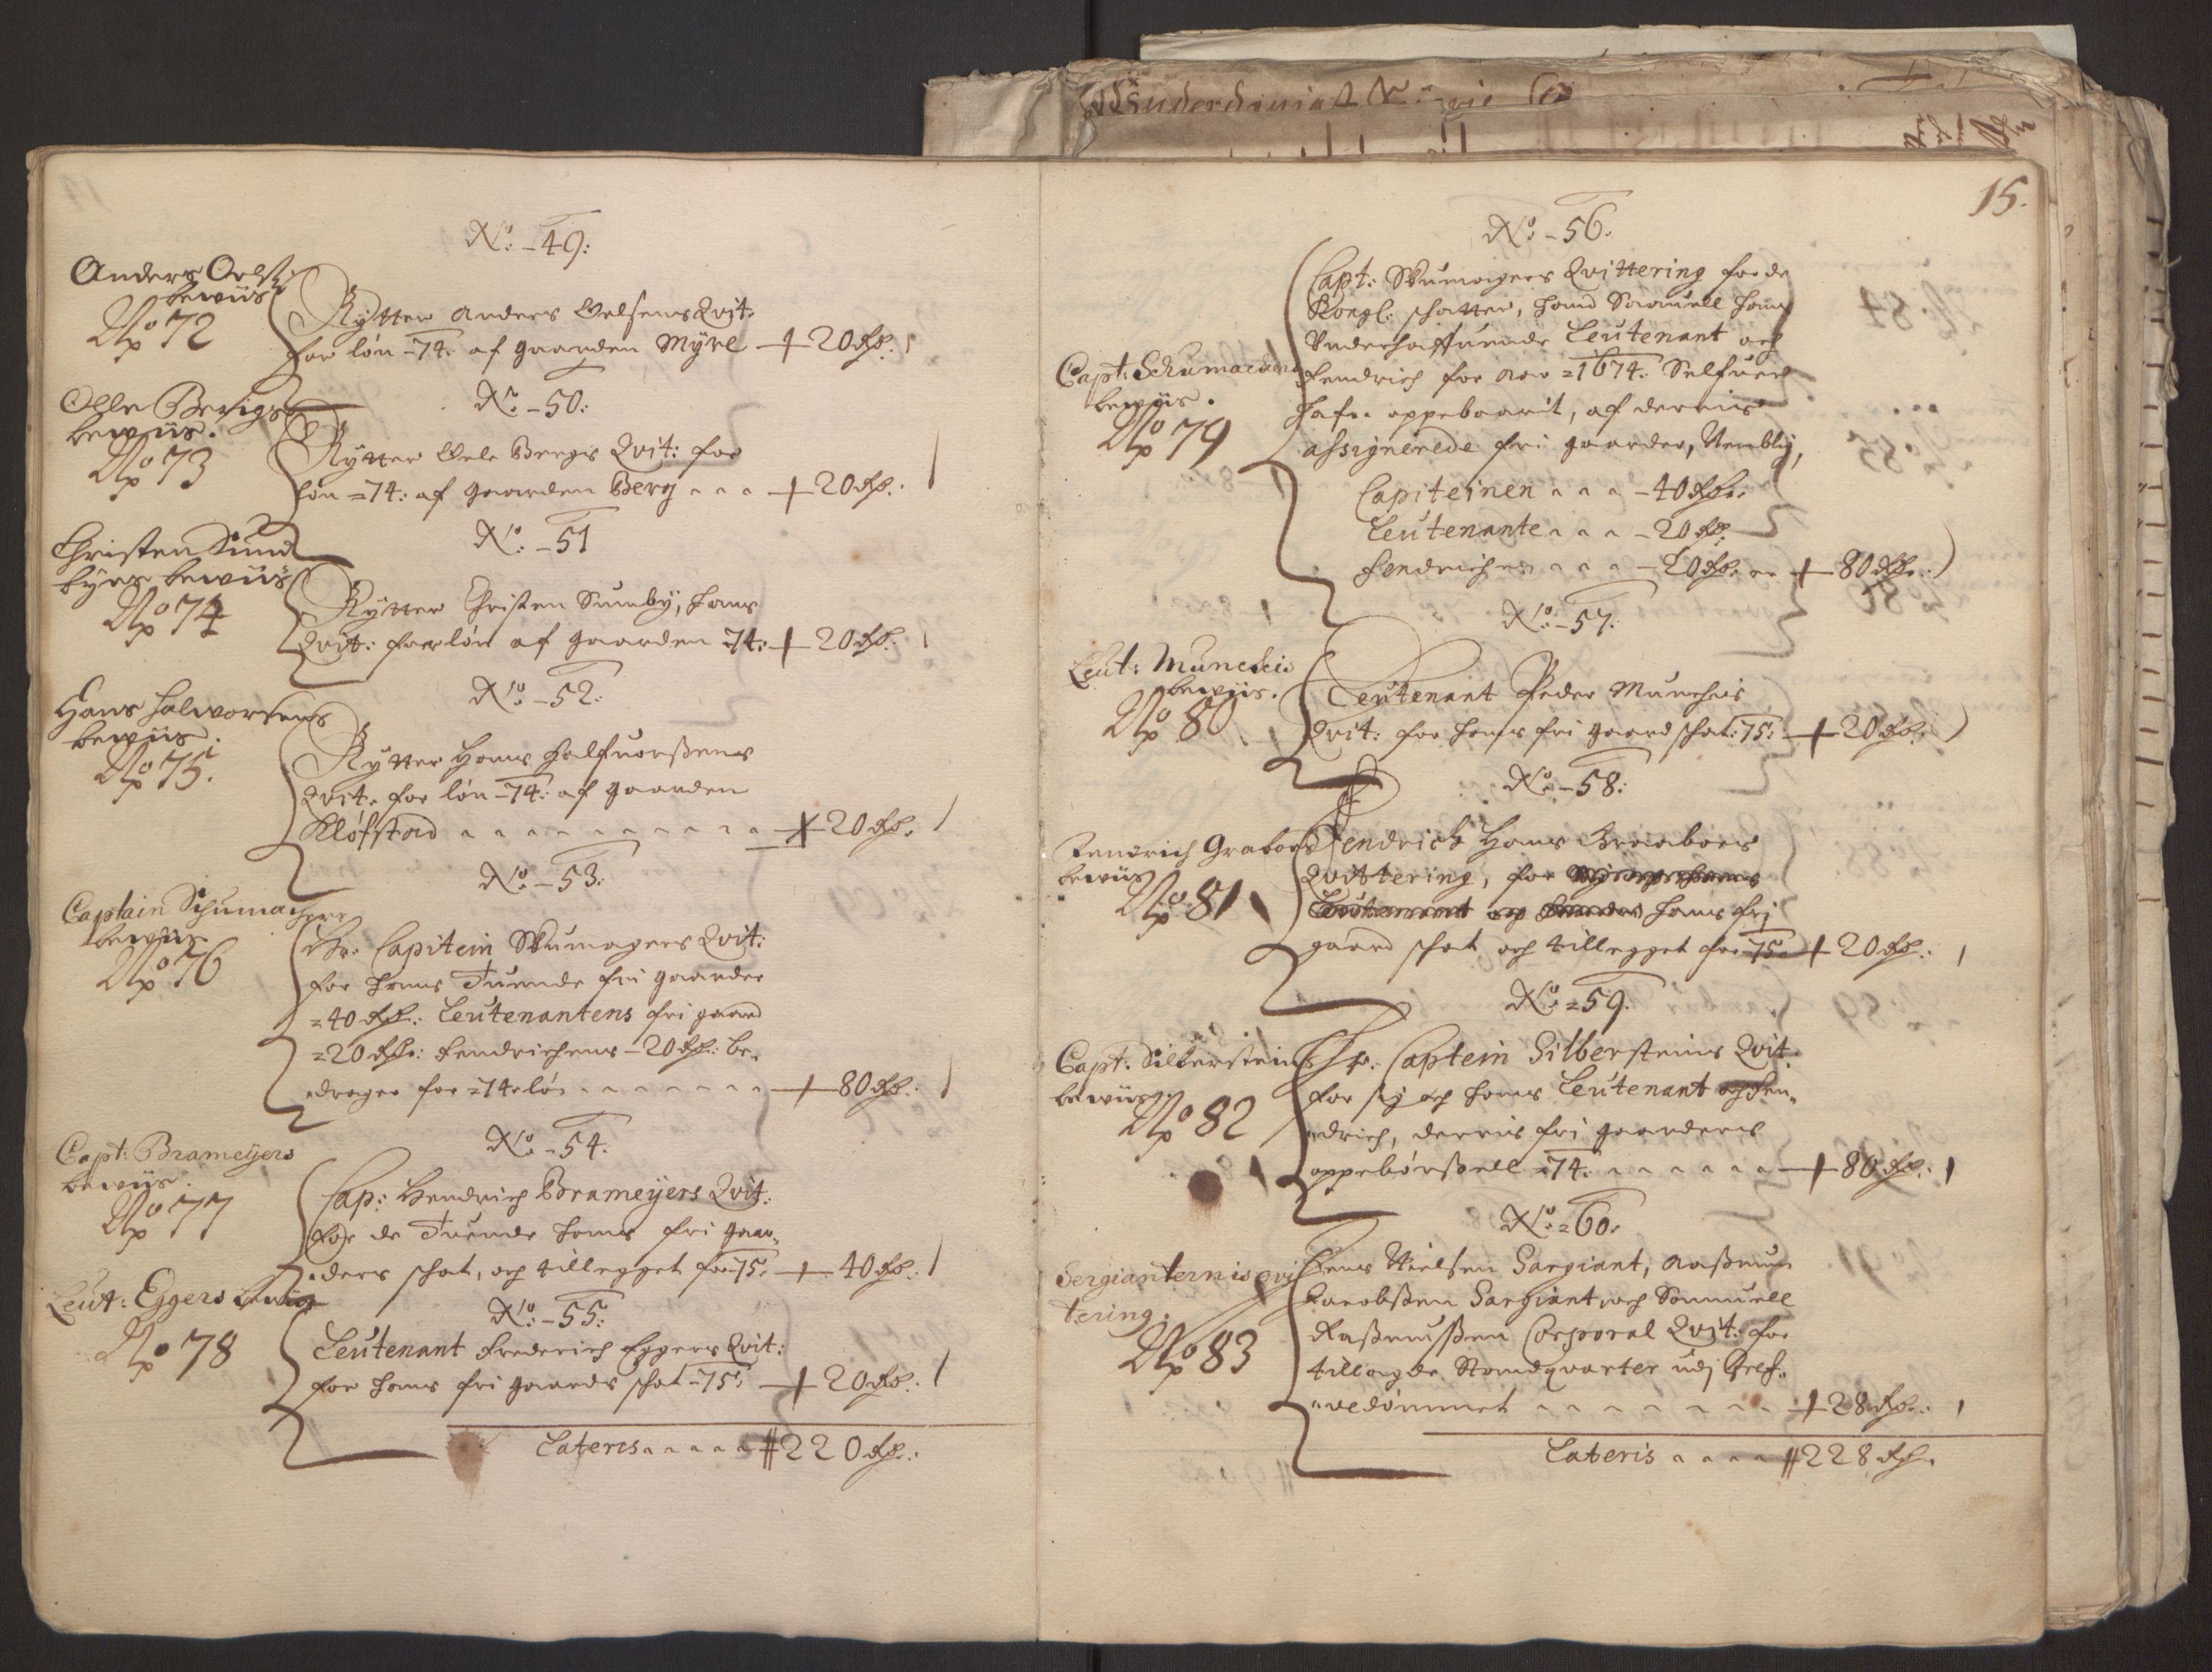 No: - 49:
Anders Oels:
bewiis
No 72
Rÿtter Anders Oelsens Qvit:
for løn - 74: af gaarden Mÿre + 20 Rdr:
No: - 50:
Olle Berigs
bewiis.
No 73
Rÿtter Oele Bergs Qvit: for
løn = 74: af gaarden Berg + 20 Rdr:
No: - 51
Christen Sund
bÿes bewiis
No 74
Rÿtter Christen Sunbÿ, hans
Qvit: for løn af gaarden 74: + 20 Rdr:
No: - 52:
Hans Halworsens
bewiis.
No 75.
Rÿtter Hans Halfuorßens
Qvit. for løn - 74: af gaarden
Kløfstad + 20 Rdr.
No: - 53:
Captain Schumachers
bewiis
No 76
Hr: Capitein Skumagers Qvit:
for hans Tuende fri gaarder
= 40 Rdr: Leutenantens fri gaard
= 20 Rdr: Fendrichens - 20 Rdr: be,
„drager for = 74 løn + 80 Rdr:
No: - 54:
Capt: Brameÿers
bewiis.
No 77
Cap: Hendrich Brameÿers Qvit:
for de Tuende hans fri gaar„
„ders schat, och tillegget for 75: + 40 Rdr:
No: - 55:
Leut: Eggers bewiis
No 78
Leutenant Frederich Eggers Qvit:
for hans fri gaards schat - 75: + 20 Rdr:
Lateris # 220 Rdr:
15.
No: - 56.
Capt: Schumachers
bewiis.
No 79
Capt: Skumagers Qvittering for de
Kongl: schatter, hand Sampt hans
Underhaffuende Leutenant och
Fendrich for Aar = 1674. Selfuer
hafr. oppebaarit, af derris
assignerede fri gaarder, Nembl:
Capiteinen - 40 Rdr:
Leutenante - 20 Rdr.
Fendrichen - 20 Rdr. + 80 Rdr:
No: - 57:
Leut: Munchis
bewiis.
No 80
Leutenant Peder Munchis
Qvit: for hans fri gaard schat: 75: + 20 Rdr.
No: - 58:
Fendrich Graboes
bewiis
No 81
Fendrich Hans Graaboes
Qvittering, for
Leutenant og hans fri
gaard schat och tillegget for 75. + 20 Rdr:
No: = 59:
Capt: Silbersteins
bewiis.
No 82
Hr. Captein Silbersteins Qvit.
for sig och hans Leutenant och Fen„
„drich, derris fri gaarders
oppebørßell = 74. + 80 Rdr:
No: = 60.
Sergianternis qvit
tering.
No 83
Jens Nielsen Sargiant, Raßmus
Jacobßen Sargiant och Samuell
Raßmußen Corporal Qvit: for
tillagde Standqvarter udj Gref„
„vedømmet + 28 Rdr:
Lateris # 228 Rdr.